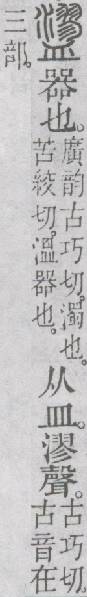 器也。廣韵古巧切。濁也。苦絞切。溫器也。从皿。漻聲。古巧切。古音在
三部。